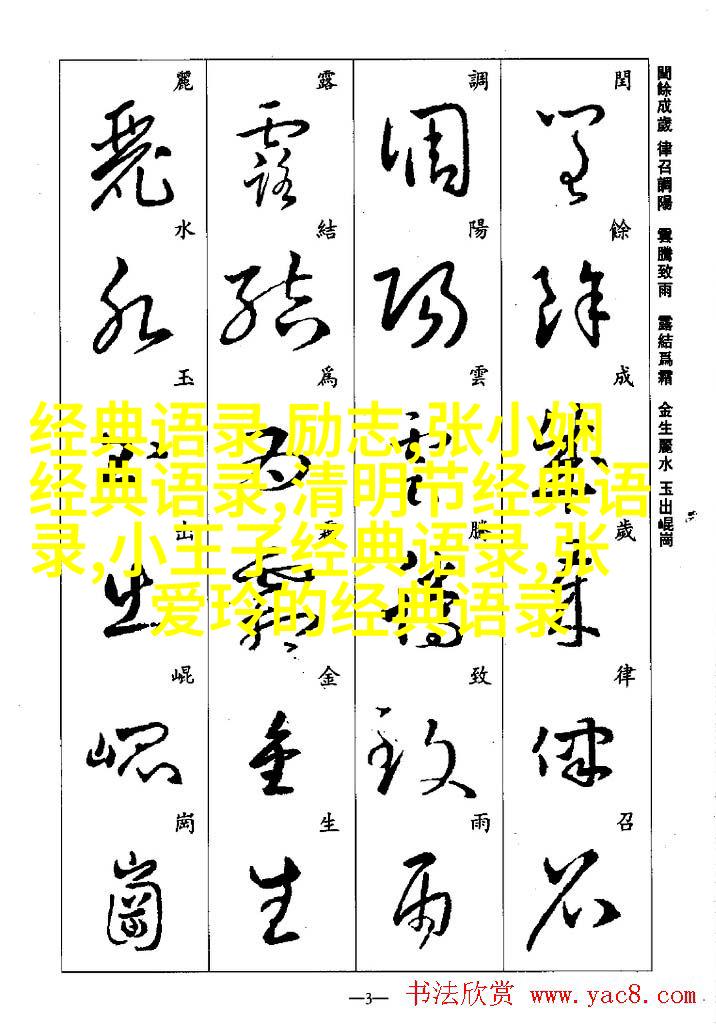 閏餘成歲 律召調陽 雲騰致雨 露結爲霜 金生麗水 玉出崐崗
閏 餘 成 歲 律 召
調 陽 雲 騰 致 雨
露 結 爲 霜 金 生
麗 水 玉 出 崐 崗
经典语录,励志,张小娴
经典语录,清明节经典语
录,小王子经典语录,张
爱玲的经典语录
—3—
书法欣赏 www.yac8.com